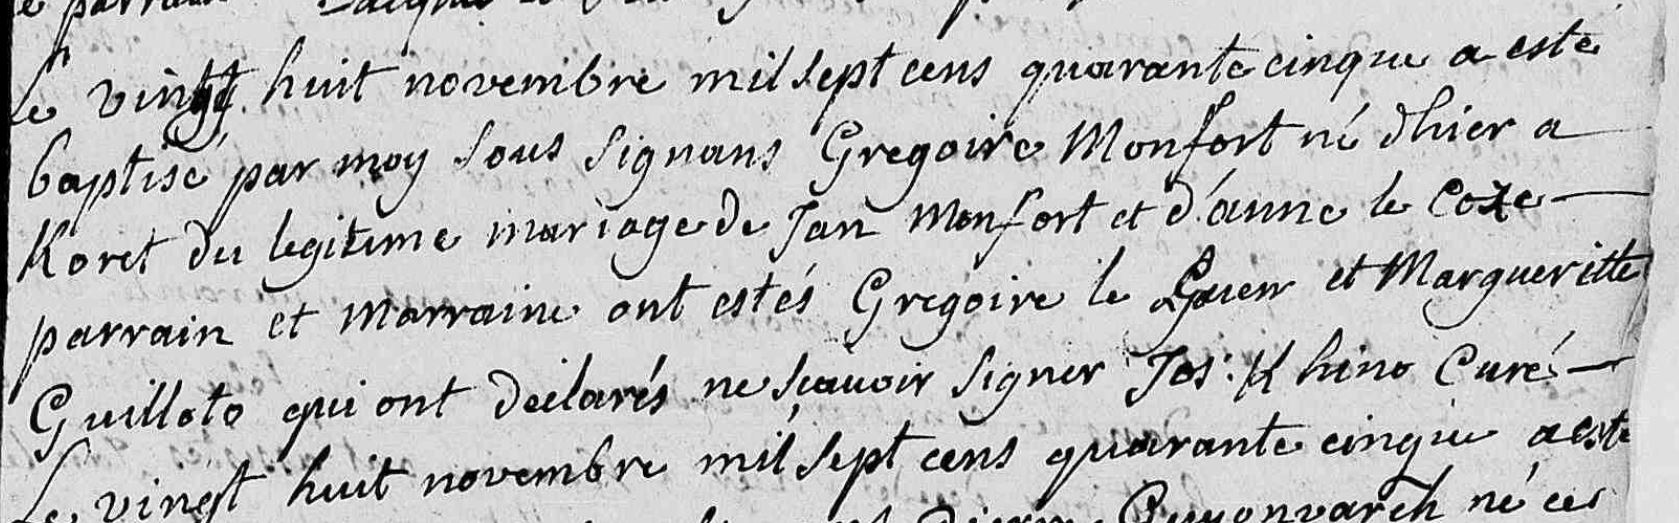 parrain
Le vingt huit novembre mil sept cens quarante cinque a esté
baptisé par moy sous signans Gregoire Monfort né d'hier a
Koret du legitime mariage de Jan Monfort et d'anne le Coze
parrain et marraine ont estés Gregoire le Guen et Margueritte
Guilloto qui ont declarés ne sçauoir signer Jos: K hino Curé
Le vingt huit novembre mil sept cens quarante cinque a esté
né ce